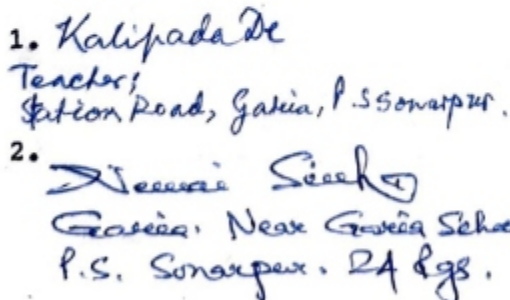 1. Kalipada De
Teacher;
Station Road, Garia, P.S Sonarpur.
2.
Nemai Sinha
Garia. Near Garia Scho
P.S. Sonarpur. 24 Pgs.